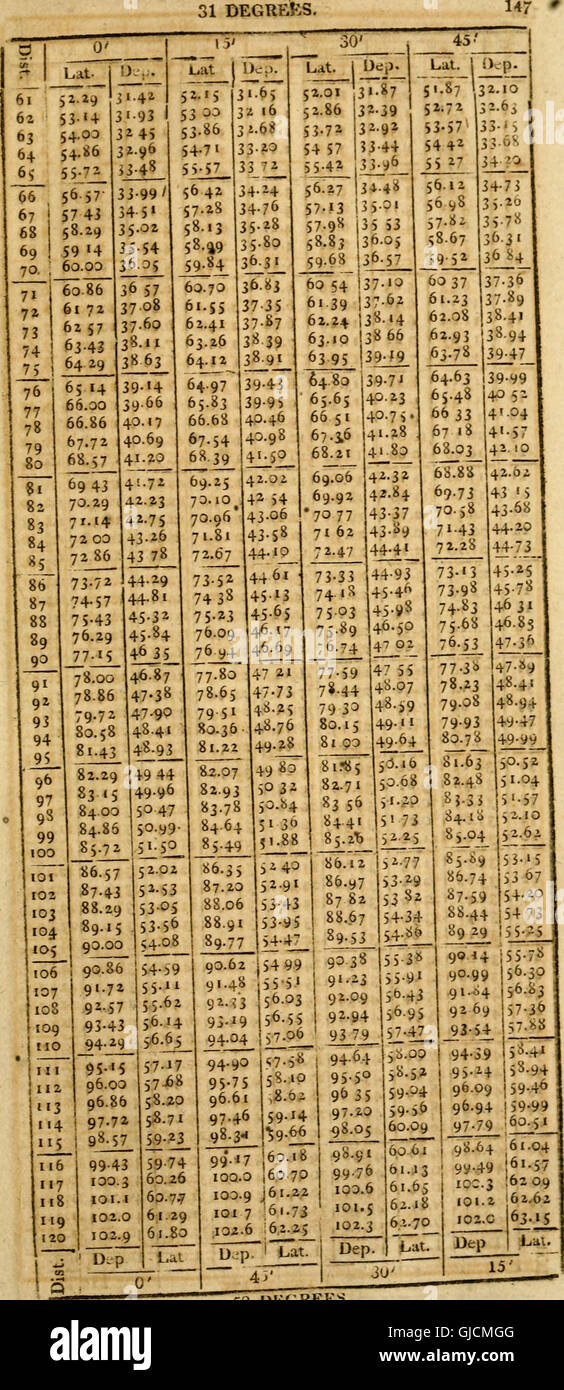 31 DEGREES. 147
Dist. 0′ 15′ 30′ 45′
Lat. Dep. Lat Dep. Lat. Dep. Lat. Dep.
61 52.29 31.42 52.15 31.65 52.01 31.87 51.87 32.10
62 53.14 31.93 53 00 32 16 52.86 32.39 52.72 32.63
63 54.00 32 45 53.86 32.68 53.72 32.92 53.57 33.15
64 54.86 32.96 54.71 33.20 54 57 33.44 54 42 33.68
65 55.72 33.48 55.57 33 72 55.42 33.96 55 27 34.20
66 56.57 33.99 56.42 34.24 56.27 34.48 56.12 34.73
67 57 43 34.51 57.28 34.76 57.13 35.01 56.98 35.26
68 58.29 35.02 58.13 35.28 57.98 35 53 57.82 35.78
69 59 14 35.54 58.99 35.80 58.83 36.05 58.67 36.31
70. 60.00 36.05 59.84 36.31 59.68 36.57 59.52 36 84
71 60.86 36 57 60.70 36.83 60 54 37.10 60 37 37.36
72 61 72 37.08 61.55 37.35 61.39 37.62 61.23 37.89
73 62 57 37.60 62.41 37.87 62.24 38.14 62.08 38.41
74 63.43 38.11 63.26 38.39 63.10 38 66 62.93 38.94
75 64.29 38.63 64.12 38.91 63 95 39.19 63.78 39.47
76 65 14 39.14 64.97 39.43 64.80 39.71 64.63 39.99
77 66.00 39.66 65.83 39.95 65.65 40.23 65.48 40 52
78 66.86 40.17 66.68 40.46 66 51 40.75 66 33 41.04
79 67.72 40.69 67.54 40.98 67.36 41.28 67 18 41.57
80 68.57 41.20 68.39 41.50 68.21 41.80 68.03 42.10
81 69 43 41.72 69.25 42.02 69.06 42.32 68.88 42.62
82 70.29 42.23 70.10 42 54 69.92 42.84 69.73 43 15
83 71.14 42.75 70.96 43.06 70 77 43.37 70.58 43.68
84 72 00 43.26 71.81 43.58 71 62 43.89 71.43 44.20
85 72 86 43 78 72.67 44.10 72.47 44.41 72.28 44.73
86 73.72 44.29 73.52 44 61 73.33 44.93 73.13 45.25
87 74.57 44.81 74 38 45.13 74 18 45.46 73.98 45.78
88 75.43 45.32 75.23 45.65 75.03 45.98 74.83 46 31
89 76.29 45.84 76.09 46.17 75.89 46.50 75.68 46.83
90 77.15 46 35 76.94 46.69 76.74 47 02 76.53 47.36
91 78.00 46.87 77.80 47 21 77.59 47 55 77.38 47.89
92 78.86 47.38 78.65 47.73 78.44 48.07 78.23 48.41
93 79.72 47.90 79.51 48.25 79 30 48.59 79.08 48.94
94 80.58 48.41 80.36 48.76 80.15 49.11 79.93 49.47
95 81.43 48.93 81.22 49.28 81 00 49.64 80.78 49.99
96 82.29 49 44 82.07 49 80 81.85 50.16 81.63 50.52
97 83 15 49.96 82.93 50 32 82.71 50.68 82.48 51.04
98 84.00 50.47 83.78 50.84 83 56 51.20 83.33 51.57
99 84.86 50.99 84.64 51 36 84.41 51 73 84.18 52.10
100 85.72 51.50 85.49 51.88 85.26 52.25 85.04 52.62
101 86.57 52.02 86.35 52 40 86.12 52.77 85.89 53.15
102 87.43 52.53 87.20 52.91 86.97 53.29 86.74 53 67
103 88.29 53.05 88.06 53.43 87 82 53 82 87.59 54.20
104 89.15 53.56 88.91 53.95 88.67 54.34 88.44 54 73
105 90.00 54.08 89.77 54.47 89.53 54.86 89 29 55.25
106 90.86 54.59 90.62 54 99 90.38 55.38 90.14 55.78
107 91.72 55.11 91.48 55.51 91.23 55.91 90.99 56.30
108 92.57 55.62 92.33 56.03 92.09 56.43 91.84 56.83
109 93.43 56.14 93.19 56.55 92.94 56.95 92 69 57.36
110 94.29 56.65 94.04 57.06 93 79 57.47 93.54 57.88
111 95.15 57.17 94.90 57.58 94.64 58.00 94.39 58.41
112 96.00 57.68 95.75 58.10 95.50 58.52 95.24 58.94
113 96.86 58.20 96.61 58.62 96 35 59.04 96.09 59.46
114 97.72 58.71 97.46 59.14 97.20 59.56 96.94 59.99
115 98.57 59.23 98.31 59.66 98.05 60.09 97.79 60.51
116 99.43 59.74 99.17 60.18 98.91 60 61 98.64 61.04
117 100.3 60.26 100.0 60.70 99.76 61.13 99.49 61.57
118 101.1 60.77 100.9 61.22 100.6 61.65 100.3 62 09
119 102.0 61.29 101 7 61.73 101.5 62.18 101.2 62.62
120 102.9 61.80 102.6 62.25 102.3 62.70 102.0 63.15
Dist. Dep Lat Dep. Lat. Dep. Lat. Dep Lat.
0′ 45′ 30′ 15′
DEGREES
alamy
Image ID: GJCMGG
www.alamy.com